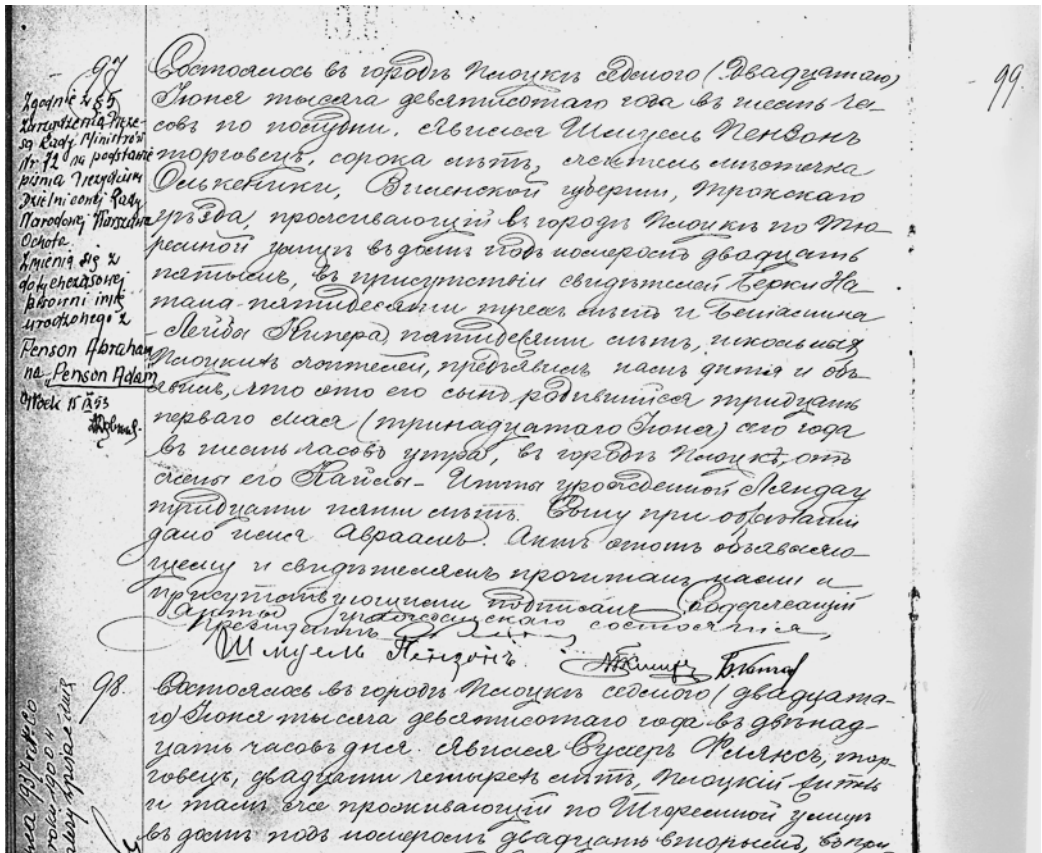 99
97
Zgodnie z § 5
Zarządzenia Preze-
sa Rady Ministrów
Nr. 72 na podstawie
pisma Prezydium
Dzielnicowej Rady
Narodowej Warszawa
Ochota.
Zmienia się z
dotychczasowej
pisowni imię
urodzonego z
Penson Abraham
na „Penson Adam"
Płock 15 IX 53
Состоялось въ городѣ Плоцкѣ седмого (двадцатаго)
Іюня тысяча девятисотаго года въ шесть ча-
совъ по полудни. Явился Шмуель Пензонъ
торговецъ, сорока лѣтъ, житель мѣстечка
Олькеники, Виленской губерніи, Трокскаго
уѣзда, проживающій въ городѣ Плоцкѣ по Тю-
ремной улицѣ въ домѣ подъ номеромъ двадцать
пятымъ, въ присутствіи свидѣтелей Берки На-
тана пятидесяти трехъ лѣтъ и Беніамина
-Лейбы Книпера, пятидесяти лѣтъ, школьныхъ
Плоцкихъ жителей, предъявилъ намъ дитя и объ-
явилъ, что это его сынъ родившійся тридцать
перваго мая (тринадцатаго Іюня) сего года
въ шесть часовъ утра, въ городѣ Плоцкѣ, отъ
жены его Кайлы-Итты урожденной Ляндау
тридцати пяти лѣтъ. Сыну при обрѣзаніи
дано имя Авраамъ. Актъ этотъ объявляю-
щему и свидѣтелямъ прочитанъ, нами и
присутствующими подписанъ. Содержащій
акты гражданскаго состоянія,
Президентъ
Шмуель Пензонъ.
98.
Состоялось въ городѣ Плоцкѣ седмого (двадцата-
го) Іюня тысяча девятисотаго года въ двѣнад-
цать часовъ дня. Явился Сухеръ Фляксъ, тор-
говецъ, двадцати четырехъ лѣтъ, Плоцкій житель
и тамъ же проживающій по Тюремной улицѣ
въ домѣ подъ номеромъ двадцать вторымъ, въ при